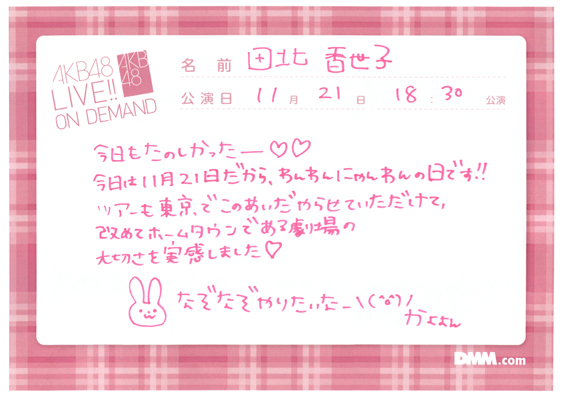 AKB48
LIVE!!
ON DEMAND
AKB
48
名 前 田北 香世子
公演日 11 月 21 日 18 : 30 公演
今日もたのしかったー♡♡
今日は11月21日だから、わんわんにゃんわんの日です!!
ツアーも東京、でこのあいだやらせていただけて、
改めてホームタウンである劇場の
大切さを実感しました♡
なぞなぞやりたいなー\(^o^)/
かよよん
DMM.com